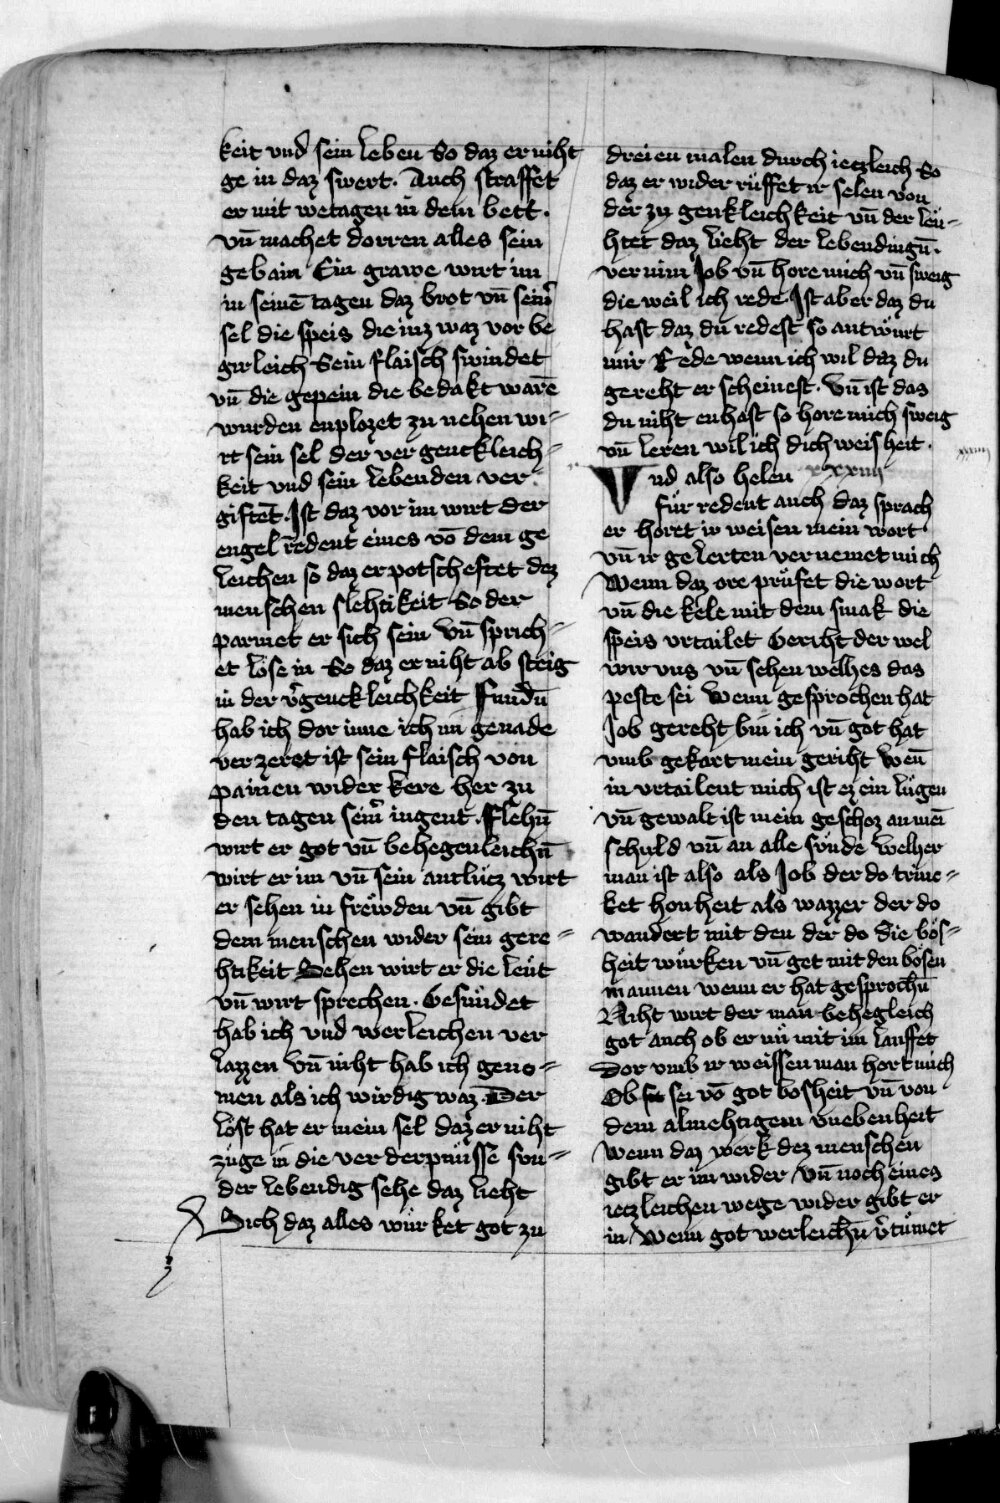 keit vnd sein leben So daz er niht
ge in daz swert. Auch straffet
er mit wetagen in dem bett.
vn̄ machet dorren alles sein
gebain Ein grawe wirt im
in seinē tagen daz brot vn̄ seinˀ
sel die speis die inz waz vor be
girleich Sein flaisch swindet
vn̄ die gepein die bedakt warē
wurden enplozet zu nehen wi⸗
rt sein sel der vergenckleich⸗
keit vnd sein lebenden ver
giftēt. Ist daz vor im wirt der
engel redent eines vō dem ge
leichen so daz er potscheftet dez
menschen slehtikeit So der
parmet er sich sein Vn̄ sprich⸗
et löse in So daz er niht ab steig
in der vˀgenckleichkeit Fundn̄
hab ich dor inne ich im genade
verzeret ist sein flaisch von
painen wider kere her zu
den tagen seinˀ iugent. Flehn̄
wirt er got vn̄ behegenleichn̄
wirt er im vn̄ sein antlücz wirt
er sehen in frewden vn̄ gibt
dem menschen wider sein gere⸗
htikeit Sehen wirt er die leüt
vn̄ wirt sprechen. Gesündet
hab ich vnd werleichen ver
lazzen vn̄ niht hab ich geno⸗
men als ich wirdig waz Der
löst hat er mein sel daz er niht
züge in die verderpnüsse sun⸗
der lebendig sehe daz lieht
Sich daz alles würket got zu
dreien malen durch ieczleich So
daz er wider rüffet ir selen von
der zu genkleichkeit vn̄ der leü⸗
htet daz lieht der lebendingn̄.
vernim Job vn̄ hore mich vn̄ sweig
die weil ich rede. Ist aber daz du
hast daz du redest so antwürt
mir Rede wenn ich wil daz du
gereht er scheinest. Vn̄ ist das
du niht enhast so hore mich sweig
vn̄ leren wil ich dich weisheit.
Vnd also helen xxxiiii
für redent auch daz sprach
er horet ir weisen mein wort
vn̄ ir gelerten vernemet mich
Wenn daz ore prüfet die wort
vn̄ die kele mit dem smak die
speis vrtailet Geriht der wel
wir vns vn̄ sehen welhes das
peste sei Wenn gesprochen hat
Job gereht bin ich vn̄ got hat
vmb gekart mein geriht Wen̄
in vrtailent mich ist ez ein lügen
vn̄ gewalt ist mein geschoz an mein
schuld vn̄ an alle sünde Welher
man ist also als Job der do trinc⸗
ket honheit als wazzer der do
wandert mit den der do die bös⸗
heit würken vn̄ get mit den bösen
mannen wenn er hat gesprochn̄
Niht wirt der man behegleich
got auch ob er nü mit im lauffet
Dor vmb ir weissen man hort mich
Ob sei vō got bosheit vn̄ von
dem almehtigem vnebenheit
Wenn daz werk dez menschen
gibt er im wider Vn̄ noch eines
ieczleichen wege wider gibt er
in Wenn got werleichn̄ vˀtümet